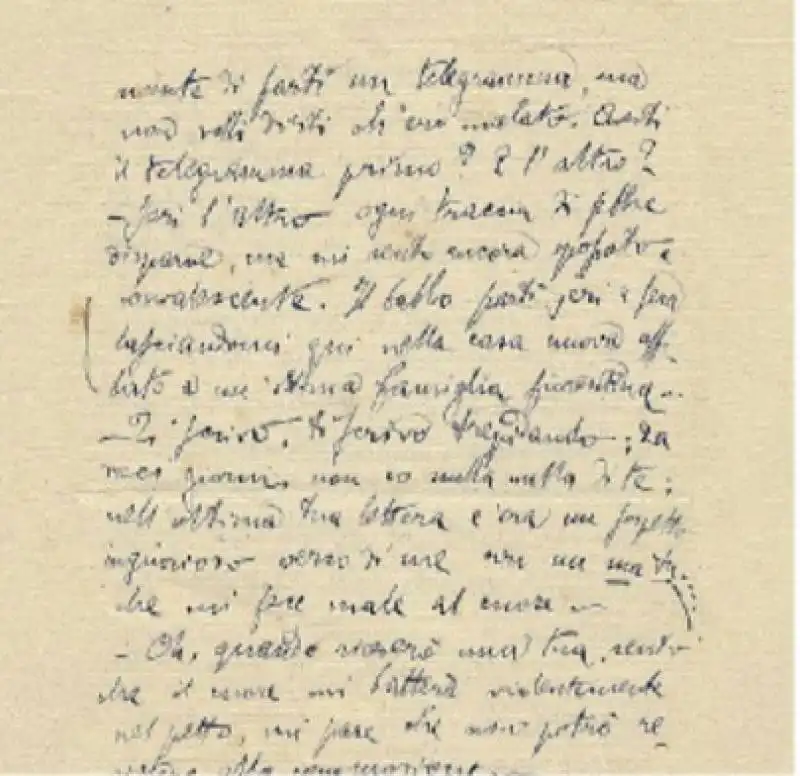 di farti un telegramma, ma
non volli dirti ch'ero malato. Avesti
il telegramma primo? E l'altro?
– Jeri l'altro ogni traccia di febre
disparve, ma mi sento ancora spossato e
convalescente. Il babbo partì jeri a sera
lasciandomi qui nella casa nuova affi-
dato a un'ottima famiglia fiorentina –
– Ti scrivo, ti scrivo trepidando; da
giorni non so nulla nulla di te;
nell'ultima tua lettera c'era un sospetto
ingiurioso verso di me con un ma
che mi fece male al cuore –
– Oh, quando riceverò una tua, sento
che il cuore mi batterà violentemente
nel petto, mi pare che non potrò re-
sistere alla commozione. –